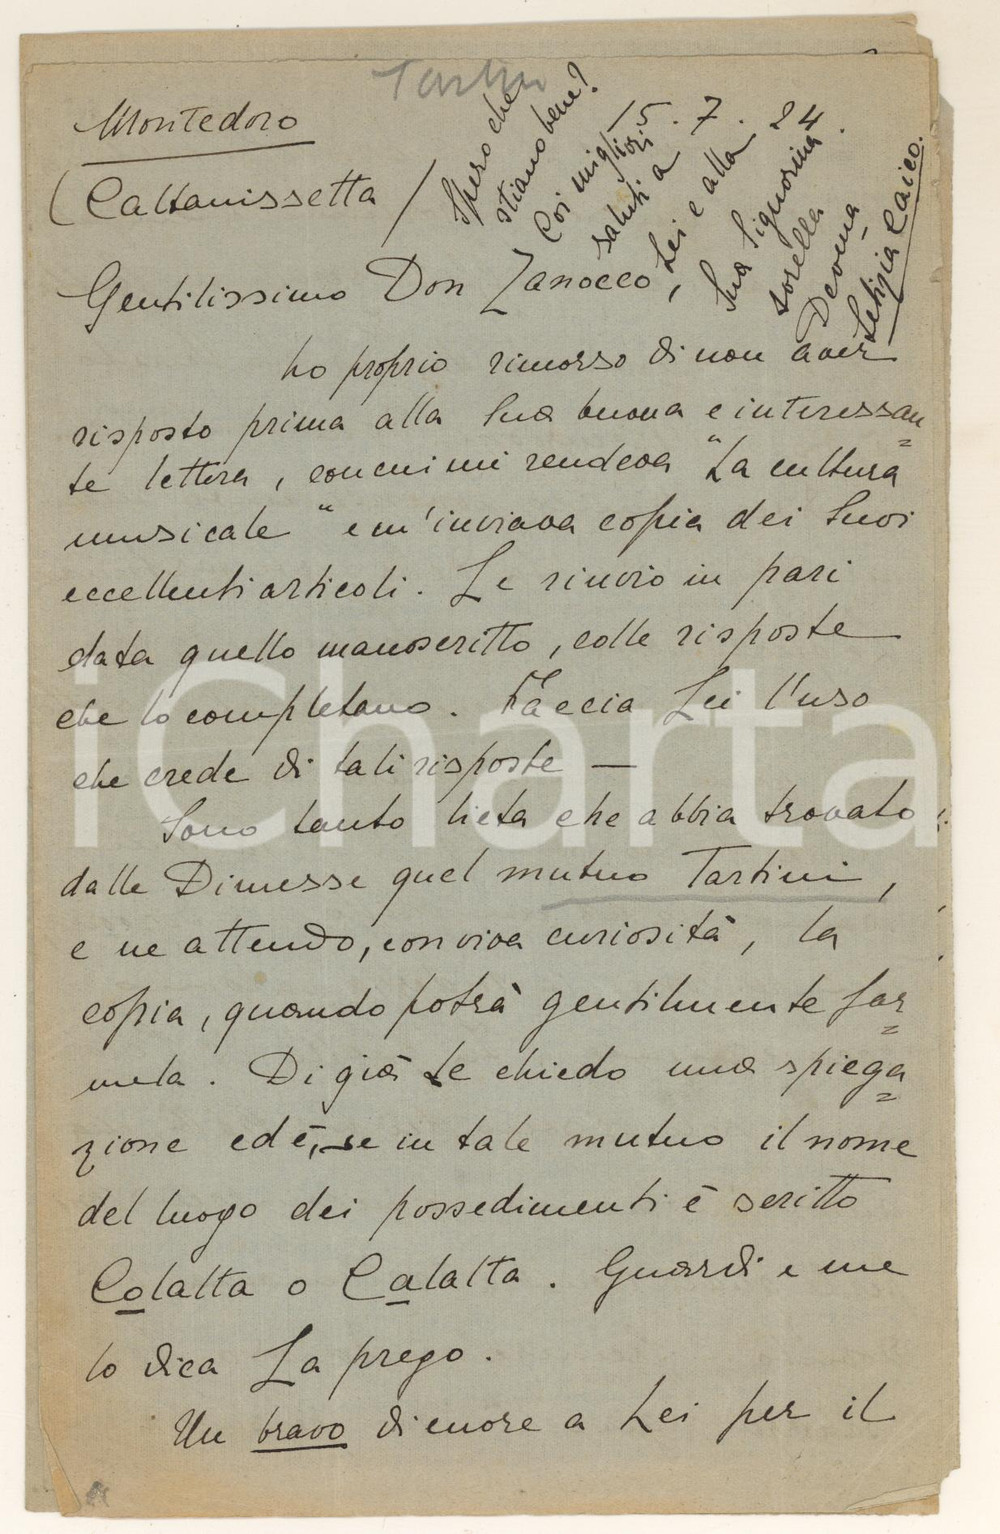 Tartini
Montedoro
(Caltanissetta)
15. 7. 24.
Gentilissimo Don Zanocco,
ho proprio rimorso di non aver
risposto prima alla Sua buona e interessan=
te lettera, con cui mi rendeva "La cultura
musicale" e m'inviava copia dei Suoi
eccellenti articoli. Le rinvio in pari
data quello manoscritto, colle risposte
che lo completano. Faccia Lei l'uso
che crede di tali risposte —
Sono tanto lieta che abbia trovato
dalle Dimesse quel mutuo Tartini,
e ne attendo, con viva curiosità, la
copia, quando potrà gentilmente far=
mela. Di già Le chiedo una spiega=
zione ed è, se in tale mutuo il nome
del luogo dei possedimenti è scritto
Colalta o Calalta. Guardi e me
lo dica La prego.
Un bravo di cuore a Lei per il
Spero che
stiano bene?
Coi migliori
saluti a
Lei e alla
Sua Signorina
sorella
Devma
Letizia Caico.
iCharta